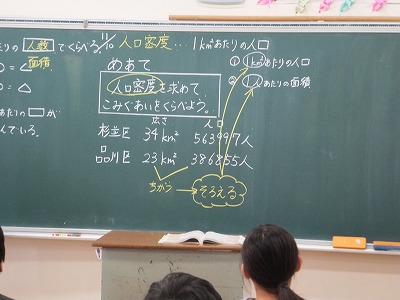 たりの 人数 でくらべる。
面積
= △
= △
あたりの□が
んでいる。
11/10 人口密度…1km²あたりの人口
めあて
人口密度を求めて、
こみぐあいをくらべよう。
広さ 人口
杉並区 34km² 563997人
品川区 23km² 386855人
ちがう→そろえる
① 1km²あたりの人口
② 1人あたりの面積